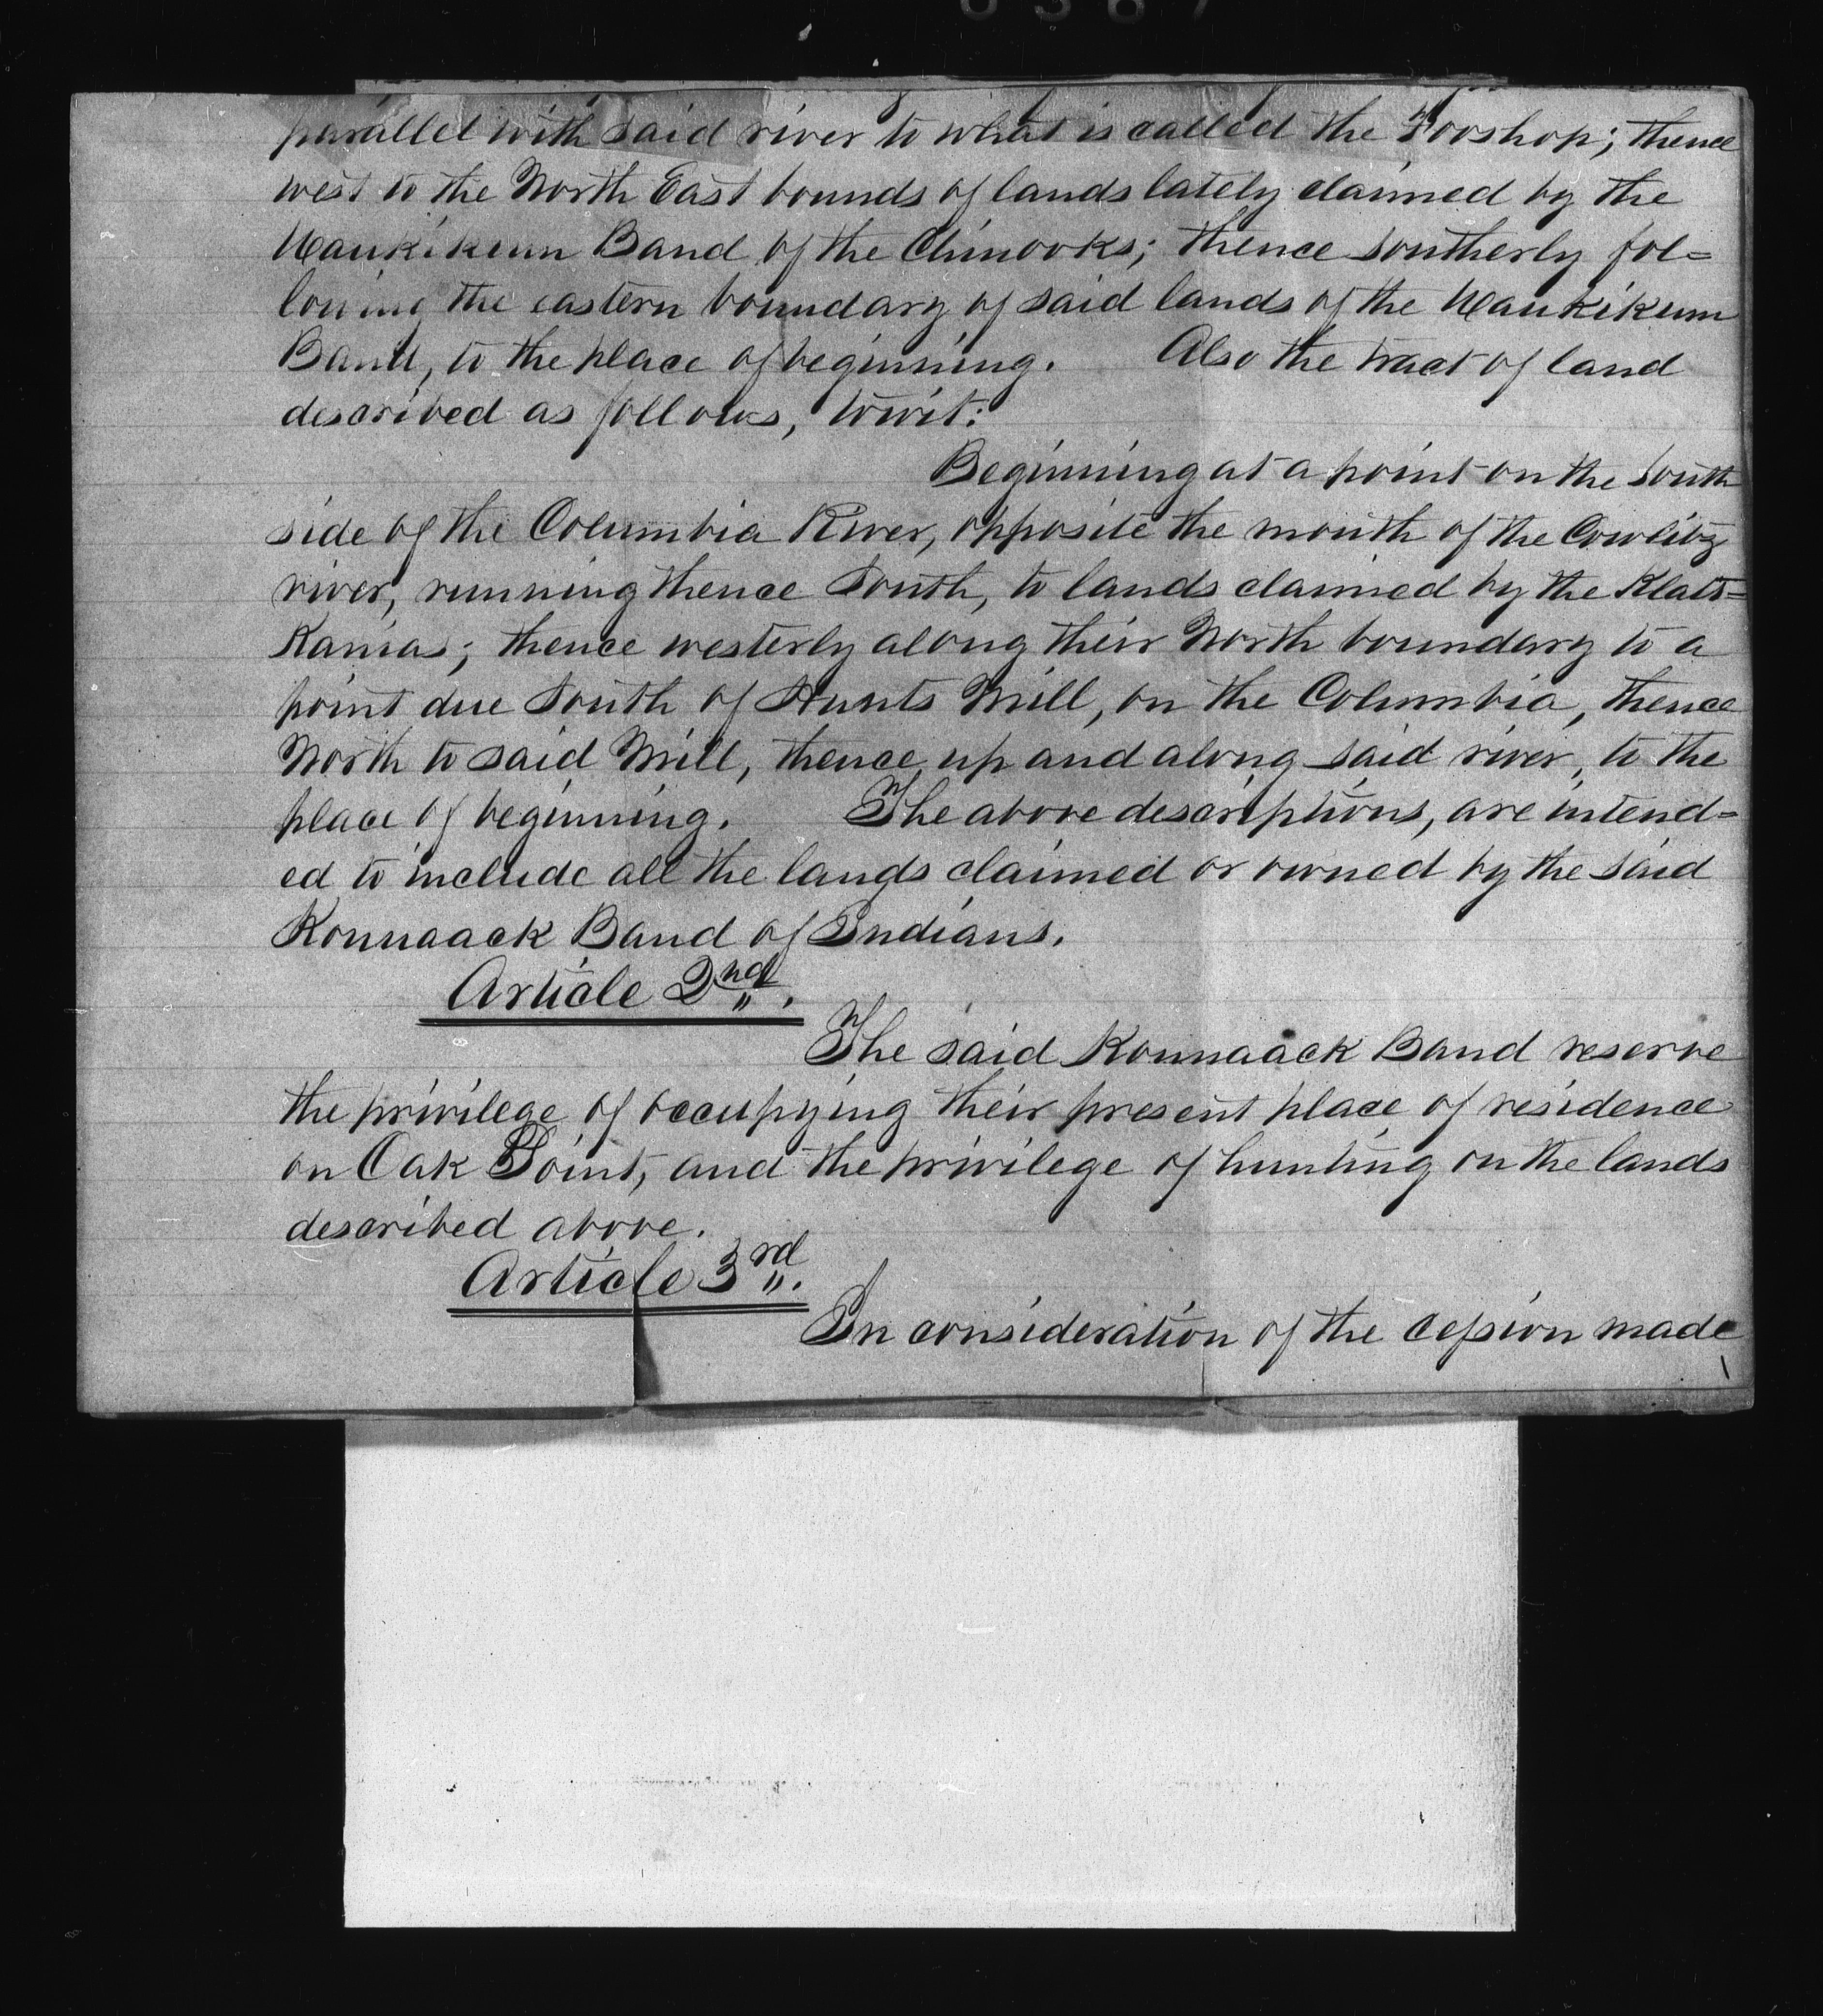 parallel with said river to what is called the Tooshop; thence
west to the North East bounds of lands lately claimed by the
Waukikum Band of the Chinooks; thence southerly fol=
lowing the eastern boundary of said lands of the Waukikum
Band, to the place of beginning. Also the tract of land
described as follows, towit:
Beginning at a point on the South
side of the Columbia River, opposite the mouth of the Cowlitz
river, running thence South, to lands claimed by the Klats=
Kanias; thence westerly along their North boundary to a
point due South of Hunts Mill, on the Columbia, thence
North to said Mill, thence up and along said river, to the
place of beginning. The above descriptions, are intend=
ed to include all the lands claimed or owned by the said
Konnaack Band of Indians.
Article 2nd.
The said Konnaack Band reserve
the privilege of occupying their present place of residence
on Oak Point, and the privilege of hunting on the lands
described above.
Article 3rd.
In consideration of the cession made